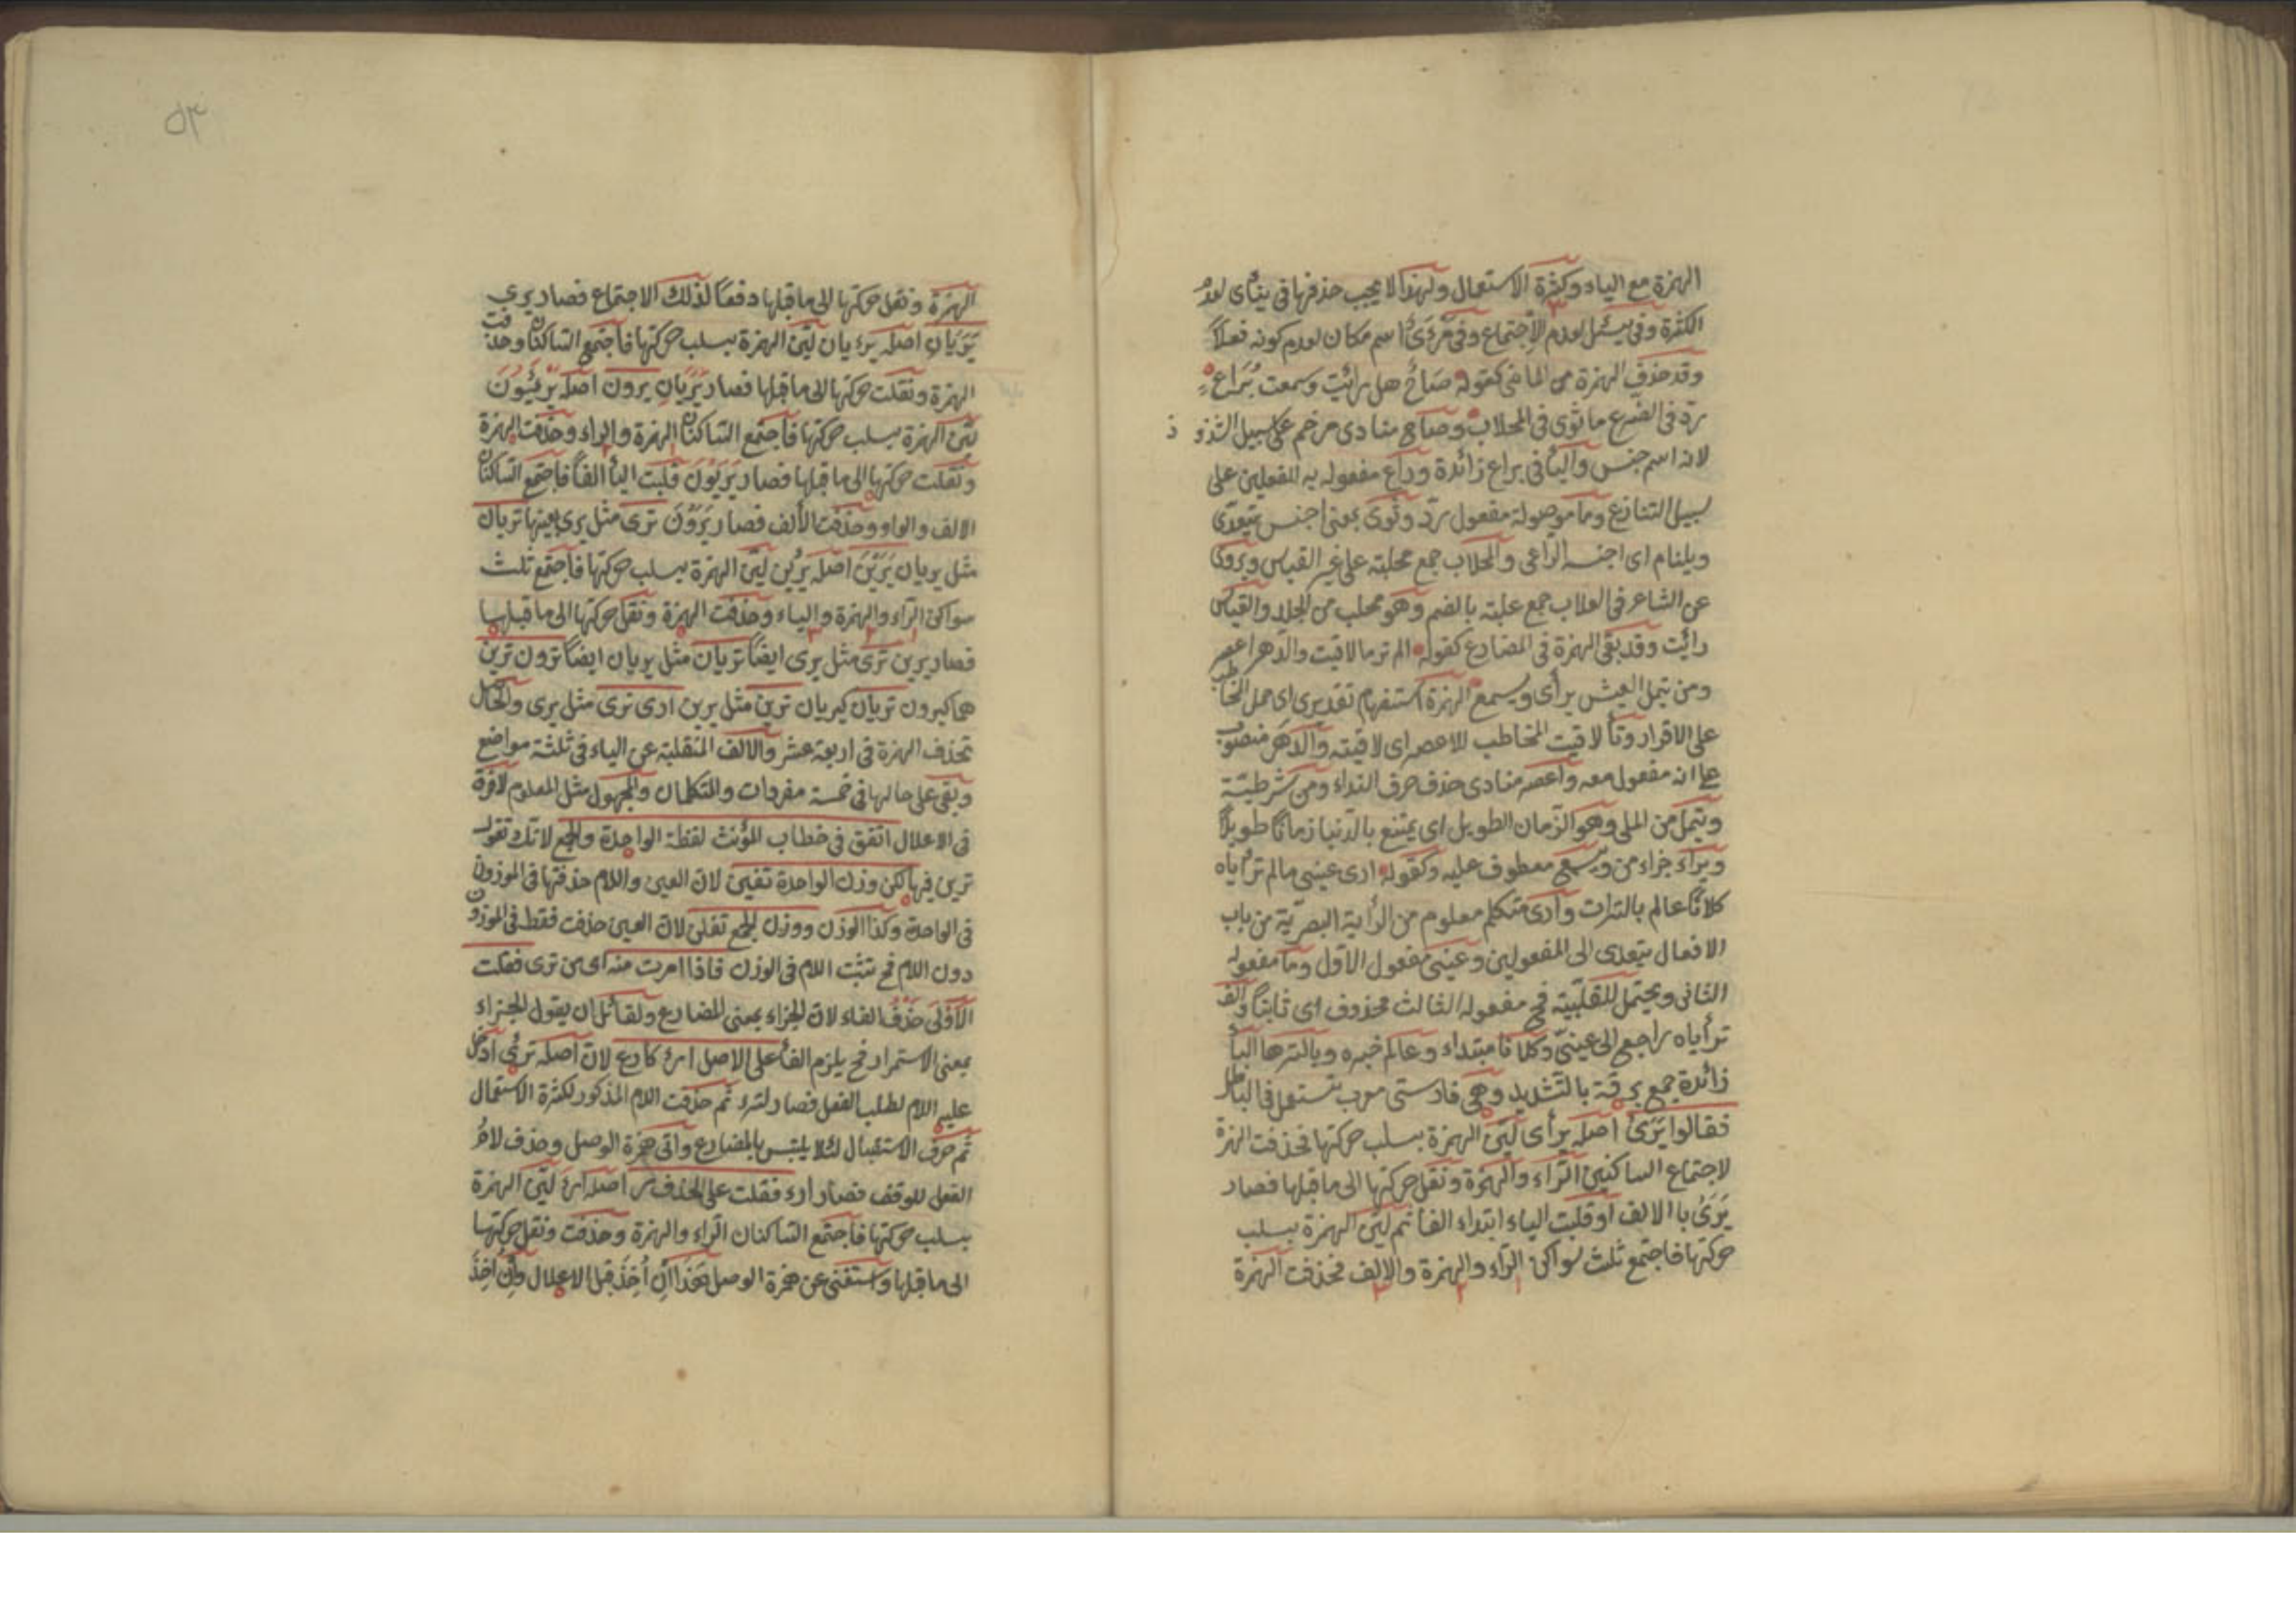 الهمزة مع الياء وكثرة الاستعمال ولهذا لا يجب حذفها فى ينأى لعدم
الكثرة وفى يسئل لعدم الاجتماع وفى مَرْءَىً اسم مكان لعدم كونه فعلاً
وقد حذف الهمزة من الماضى كقوله صَاحِ هل رائيت وسمعت بَرَاعٍ
ردّ فى الضرع ما ثوى فى الحلاب وصاح منادى مرخم على سبيل الشذوذ
لانه اسم جنس والبأ فى براع زائدة وراع مفعوله به المفعلين على
سبيل التنازع وما موصولة مفعول ردّ وثوى بمعنى اجنس يتعدى
ويلنام اى اجنسه الراعى والمحلاب جمع محلبة على غير القياس ويروى
عن الشاعر فى العلاب جمع علبة بالضم وهو محلب من الجلد والقياس
رأيت وقد بقى الهمزة فى المضارع كقوله الم تر ما لاقيت والدهر اعصر
ومن يتمل العيش يرأى ويسمع الهمزة استفهام تقديرى اى حمل المخاطب
على الاقرار وتأ لاقيت المخاطب للاعصر اى لاقيته والدهر منصوب
على انه مفعول معه واعصر منادى حذف حرف النداء ومن شرطيّة
ويتمل من الملى وهو الزمان الطويل اى يمتنع بالدنيا زمانًا طويلاً
ويراء جزاء من ويسمع معطوف عليه وكقوله ارى عينى مالم ترأياه
كلانا عالم بالترات وأرى متكلم معلوم من الرأية البصريّة من باب
الافعال يتعدى الى المفعولين وعينى مفعول الاول وما مفعوله
الثانى ويحتمل للقلبيّة فح مفعوله الثالث محذوف اى ثابتًا والف
ترأياه راجع الى عينىّ وكلانا مبتداء وعالم خبره وبالترها البأ
زائدة جمع برقة بالتشديد وهى فارستى معرب يستعمل فى الباطل
فقالوا يَرَىٰ اصله يرأى ليّن الهمزة بسلب حركتها فحذفت الهمزة
لاجتماع الساكنين الرّاء والهمزة ونقل حركتها الى ما قبلها فصار
يَرَىٰ باالالف او قلبت الياء ابتداء الفًا ثم ليّن الهمزة بسلب
حركتها فاجتمع ثلث سواكن الرّاء والهمزة والالف فحذفت الهمزة
٥٣
الهمزة ونقل حركتها الى ما قبلها دفعًا لذلك الاجتماع فصار يرى
يَرَيَانِ اصله يرءيان ليّن الهمزة بسلب حركتها فاجتمع الساكنان وحذفت
الهمزة ونقلت حركتها الى ما قبلها فصار يَرَيَانِ يرون اصله يَرْءَيُونَ
ليّن الهمزة بسلب حركتها فاجتمع الساكنان الهمزة والراء وحذفت الهمزة
ونقلت حركتها الى ما قبلها فصار يَرَيُوْنَ قلبت اليأ الفًا فاجتمع الساكنان
الالف والواو وحذفت الألف فصار يَرَوْنَ ترى مثل يرى بعينها تريان
مثل يريان يَرَيْنَ اصله يَرْئَيْن ليّن الهمزة بسلب حركتها فاجتمع ثلث
سواكن الرّاء والهمزة والياء وحذفت الهمزة ونقل حركتها الى ما قبلها
فصار يرين ترى مثل يرى ايضًا تريان مثل يريان ايضًا ترون ترين
هما كيرون تريان كيريان ترين مثل يرين ارى نرى مثل يرى والحاصل
تحذف الهمزة فى اربعة عشر والالف المنقلبة عن الياء فى ثلثة مواضع
وبقى على حالها فى خمسة مفردات والمتكلمان والمجهول مثل المعلوم لافرق
فى الاعلال اتفق فى خطاب المؤنث لفظة الواحدة والجمع لانك تقول
ترين فيها لكن وزن الواحدة تفين لان العين واللام حذفتها فى الموزون
فى الواحدة وكذا الوزن ووزن الجمع تفلن لان العين حذفت فقط فى الموزون
دون اللام فح تثبت اللام فى الوزن فاذا امرت منه اى من ترى فقلت
الاولى حذف الفاء لان الجزاء بمعنى المضارع ولقائل ان يقول الجزاء
بمعنى الاستمرار فح يلزم الفأ على الاصل ارء كارع لان اصله ترئى ادخل
عليه اللام لطلب الفعل فصار لترء ثم حذفت اللام المذكور لكثرة الاستعمال
ثم حرف الاستقبال لئلا يلتبس بالمضارع واتى همزة الوصل وحذف لام
الفعل للوقف فصار ارء فقلت على الحذف ر اصله ارء ليّن الهمزة
بسلب حركتها فاجتمع الساكنان الراء والهمزة وحذفت ونقل حركتها
الى ما قبلها واستغنى عن همزة الوصل بَعْدَ ان أُخِذَ قبل الاعلال وان اخذ